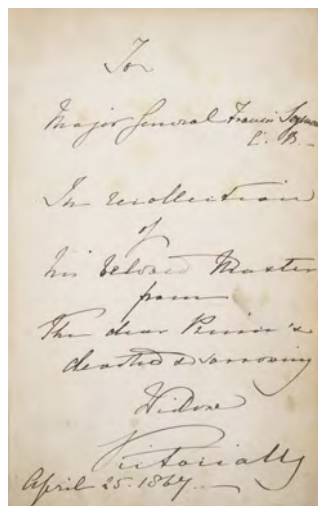 To
Major General Francis Seymour
C. B.
In recollection
of
his beloved Master
from
the dear Prince's
devoted & sorrowing
Widow
Victoria R
April 25. 1867.